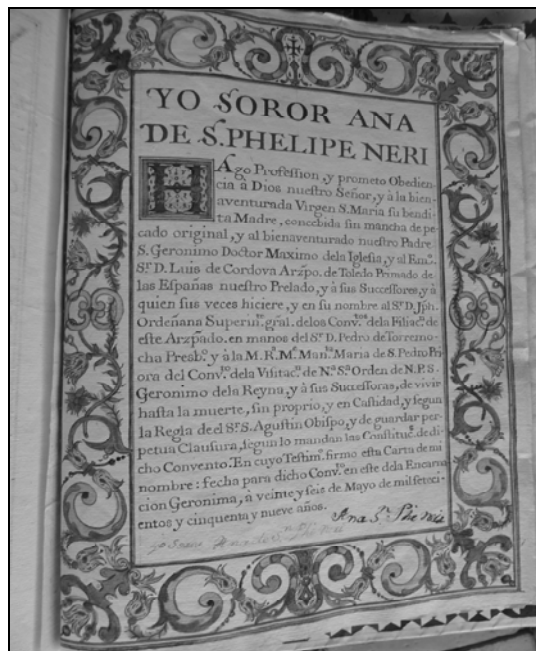 YO SOROR ANA
DE S. PHELIPE NERI
HAgo Profession, y prometo Obedien-
cia à Dios nuestro Señor, y à la bien-
aventurada Virgen S. Maria su bendi-
ta Madre, concebida sin mancha de pe-
cado original, y al bienaventurado nuestro Padre
S. Geronimo Doctor Maximo dela Iglesia, y al Emo.
Sr. D. Luis de Cordova Arzpo. de Toledo Primado de
las Españas nuestro Prelado, y à sus Successores, y à
quien sus veces hiciere, y en su nombre al Sr. D. Jph.
Ordeñana Superinte. gral. delos Convtos. dela Filiacn. de
este Arzpado. en manos del Sr. D. Pedro de Torremo-
cha Presbo. y à la M. Ra. Me. Mana. Maria de S. Pedro Pri
ora del Convto. dela Visitacn. de Na. Sa. Orden de N. P. S.
Geronimo dela Reyna, y à sus Successoras, de vivir
hasta la muerte, sin proprio, y en Castidad, y segun
la Regla de el Sr. S. Agustin Obispo, y de guardar per-
petua Clausura, segun lo mandan las Constitucs. de di
cho Convento. En cuyo Testimo. firmo esta Carta de mi
nombre: fecha para dicho Convto. en este dela Encarna
cion Geronima, à veinte y seis de Mayo de mil seteci-
entos y cinquenta y nueve años.
Ana Sn.